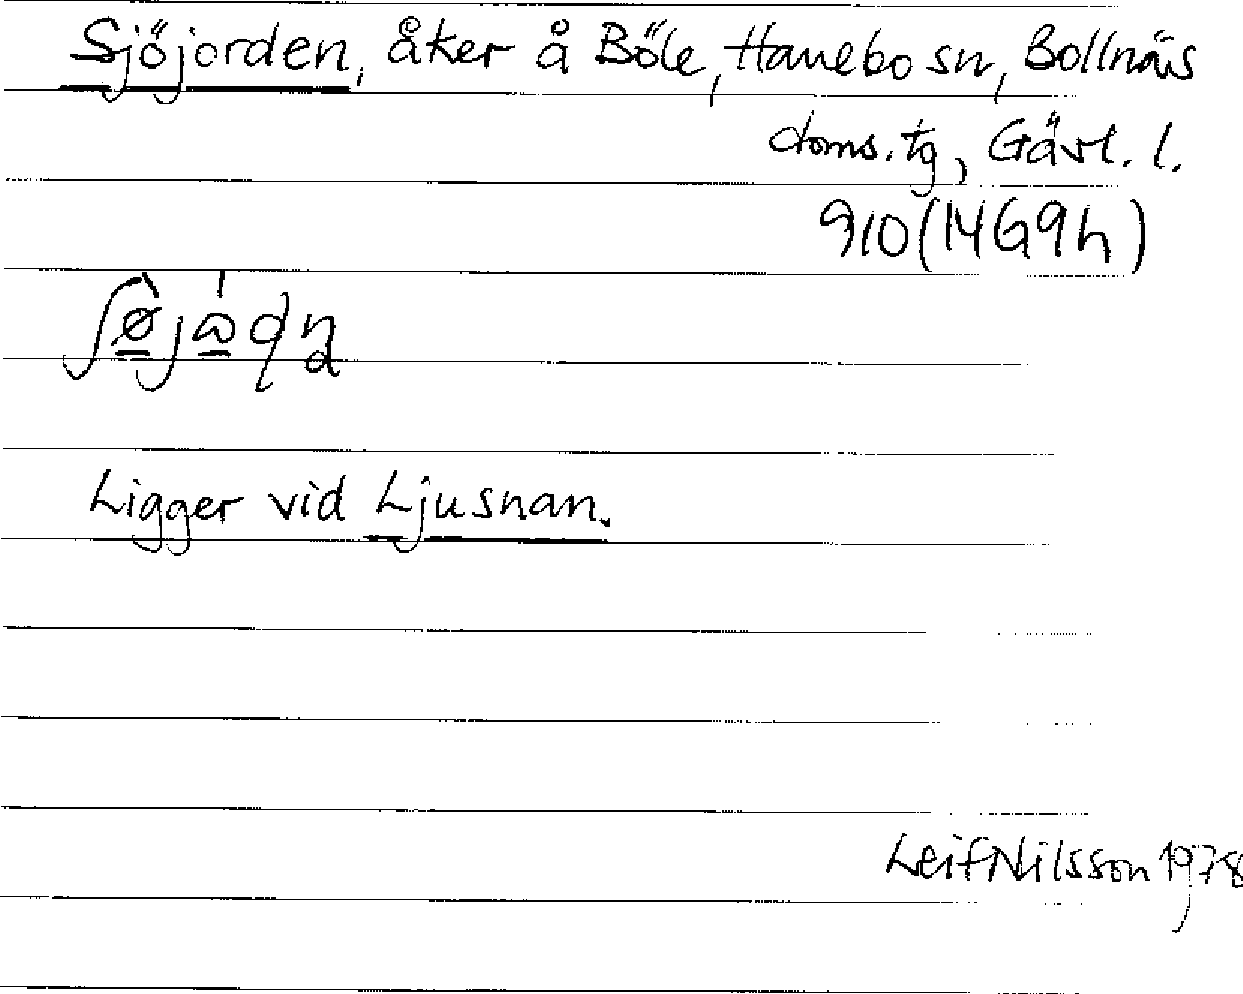 Sjöjorden, åker å Böle, Hanebo sn, Bollnäs
doms. tg, Gävl. l.
910 (14G9h)
Ligger vid Ljusnan.
Leif Nilsson 1978